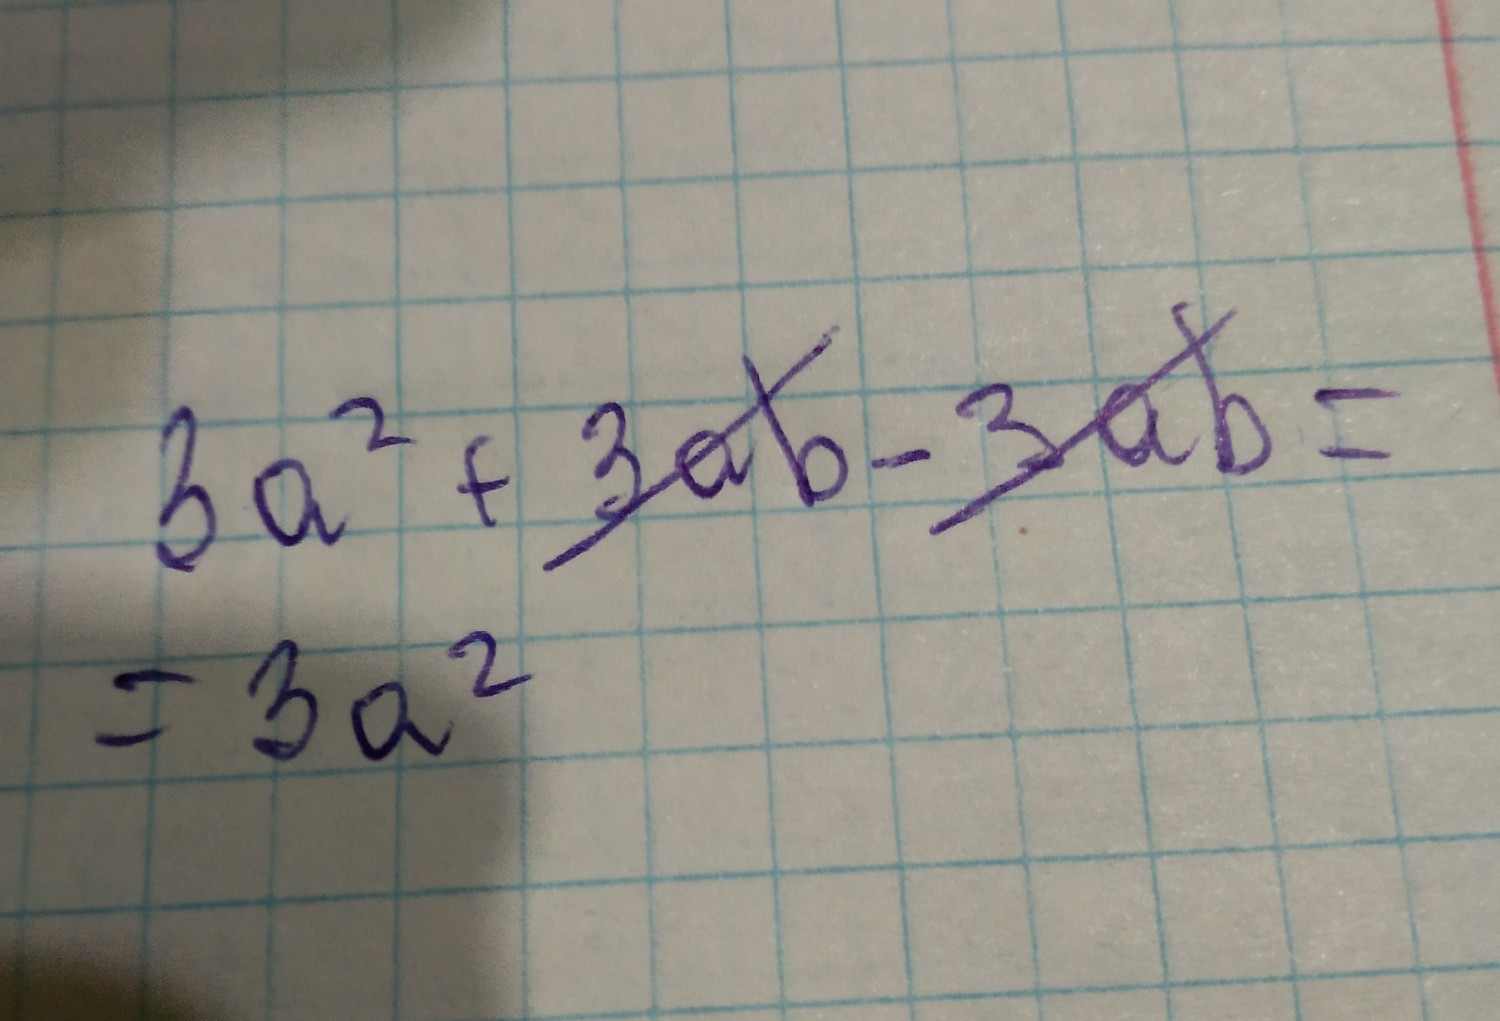 3a² + 3ab - 3ab =
= 3a²